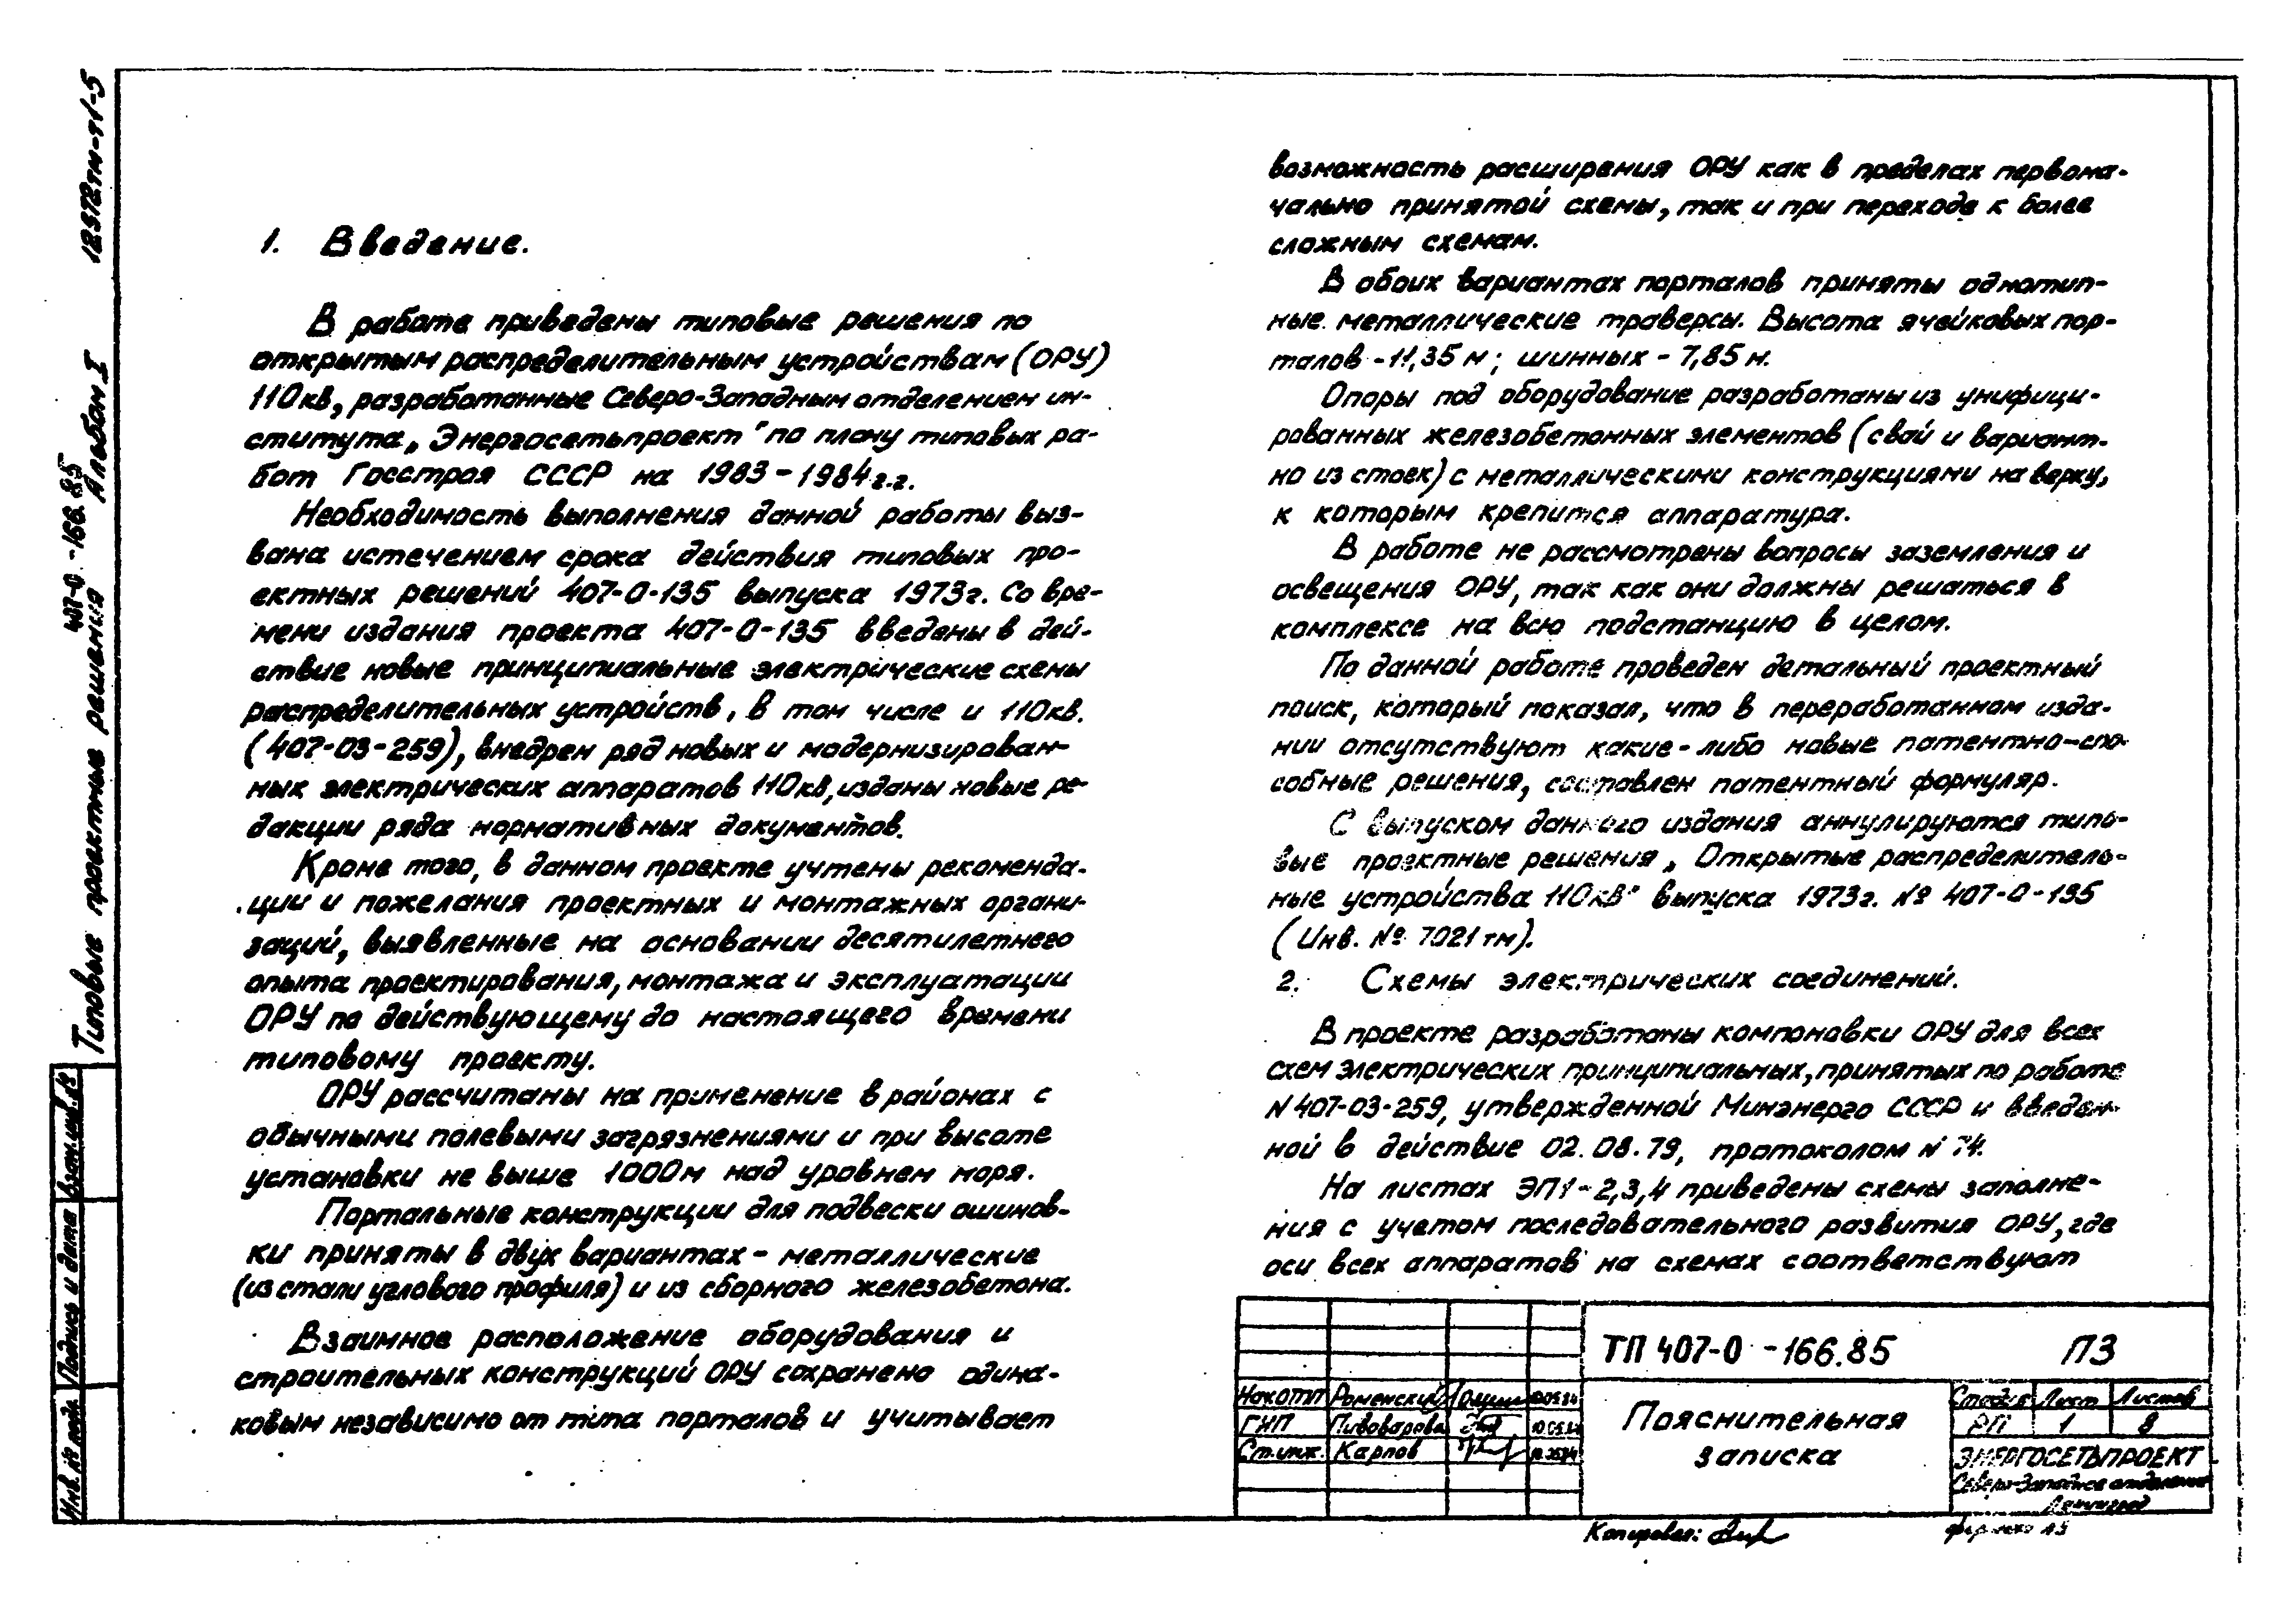 12372тм-т1-5
407-0-166.85 Альбом I
Типовые проектные решения
1. Введение.
В работе приведены типовые решения по
открытым распределительным устройствам (ОРУ)
110кв, разработанные Северо-Западным отделением ин-
ститута „Энергосетьпроект" по плану типовых ра-
бот Госстроя СССР на 1983-1984г.г.
Необходимость выполнения данной работы выз-
вана истечением срока действия типовых про-
ектных решений 407-0-135 выпуска 1973г. Со вре-
мени издания проекта 407-0-135 введены в дей-
ствие новые принципиальные электрические схемы
распределительных устройств, в том числе и 110кв.
(407-03-259), внедрен ряд новых и модернизирован-
ных электрических аппаратов 110кв, изданы новые ре-
дакции ряда нормативных документов.
Кроме того, в данном проекте учтены рекоменда-
ции и пожелания проектных и монтажных органи-
заций, выявленные на основании десятилетнего
опыта проектирования, монтажа и эксплуатации
ОРУ по действующему до настоящего времени
типовому проекту.
ОРУ рассчитаны на применение в районах с
обычными полевыми загрязнениями и при высоте
установки не выше 1000м над уровнем моря.
Портальные конструкции для подвески ошинов-
ки приняты в двух вариантах - металлические
(из стали углового профиля) и из сборного железобетона.
Взаимное расположение оборудования и
строительных конструкций ОРУ сохранено одина-
ковым независимо от типа порталов и учитывает
возможность расширения ОРУ как в пределах первона-
чально принятой схемы, так и при переходе к более
сложным схемам.
В обоих вариантах порталов приняты однотип-
ные металлические траверсы. Высота ячейковых пор-
талов - 11,35 м; шинных - 7,85 м.
Опоры под оборудование разработаны из унифици-
рованных железобетонных элементов (свай и вариант-
но из стоек) с металлическими конструкциями на верху,
к которым крепится аппаратура.
В работе не рассмотрены вопросы заземления и
освещения ОРУ, так как они должны решаться в
комплексе на всю подстанцию в целом.
По данной работе проведен детальный проектный
поиск, который показал, что в переработанном изда-
нии отсутствуют какие-либо новые патентно-спо-
собные решения, составлен патентный формуляр.
С выпуском данного издания аннулируются типо-
вые проектные решения „Открытые распределитель-
ные устройства 110кв" выпуска 1973г. № 407-0-135
(Инв. № 7021тм).
2. Схемы электрических соединений.
В проекте разработаны компоновки ОРУ для всех
схем электрических принципиальных, принятых по работе
N 407-03-259, утвержденной Минэнерго СССР и введен-
ной в действие 02.08.79, протоколом N 74.
На листах ЭП1-2,3,4 приведены схемы заполне-
ния с учетом последовательного развития ОРУ, где
оси всех аппаратов на схемах соответствуют
ТП 407-0-166.85 ПЗ
Нач.ОТП Роменский
ГИП Пивоварова
Ст.инж. Карпов
Пояснительная
записка
Стадия Лист Листов
РП 1 8
ЭНЕРГОСЕТЬПРОЕКТ
Северо-Западное отделение
Ленинград
Копировал:
формат А3
Инв. № подл. Подпись и дата Взам.инв.№